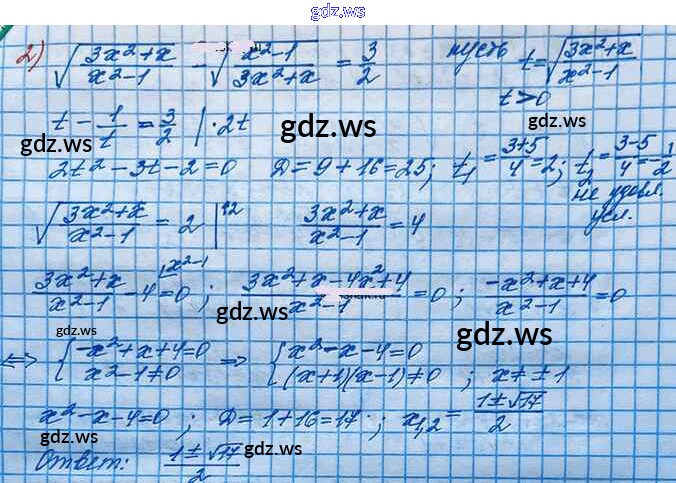 gdz.ws
2) √(3x²+x / x²-1) - √(x²-1 / 3x²+x) = 3/2 пусть t=√(3x²+x / x²-1)
t>0
t - 1/t = 3/2 | ·2t gdz.ws gdz.ws
gdz.ws
2t² - 3t - 2 = 0 D = 9 + 16 = 25; t₁ = 3+5/4 = 2; t₂ = 3-5/4 = -1/2
не удовл.
усл.
√(3x²+x / x²-1) = 2 |↑2 3x²+x / x²-1 = 4
3x²+x / x²-1 - 4 = 0 |x²-1 ; 3x²+x-4x²+4 / x²-1 = 0 ; -x²+x+4 / x²-1 = 0
gdz.ws gdz.ws gdz.ws
⇔ { -x²+x+4=0 ⇒ { x²-x-4=0
x²-1≠0 (x+1)(x-1)≠0 ; x≠±1
x²-x-4=0 ; D=1+16=17 ; x₁,₂ = 1±√17 / 2
gdz.ws gdz.ws gdz.ws
Ответ: 1±√17 / 2